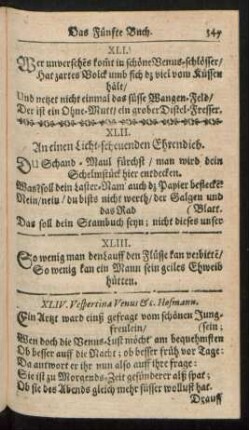 Das Fünfte Buch. 347
XLI.
Wer unverschēs kom̄t in schöne Venus-schlösser/
Hat zartes Volck umb sich dz viel vom Küssen
hält/
Und netzet nicht einmal das süsse Wangen-Feld/
Der ist ein Ohne-Mutt/ ein grober Distel-Fresser.
XLII.
An einen Licht-scheuenden Ehrendieb.
DU Schand-Maul fürchst/ man wird dein
Schelmstück hier entdecken.
Was? soll dein Laster-Nam' auch dz Papier beflecken?
Nein/ nein/ du bists nicht werth/ der Galgen und
das Rad (Blatt.
Das soll dein Stambuch seyn; nicht dieses unser
XLIII.
So wenig man den Lauff den Flüssē kan verbittē/
So wenig kan ein Mann sein geiles Ehweib
hütten.
XLIV. Vespertina Venus &c. Hofmann.
Ein Artzt ward einst gefragt vom schönen Jung-
freulein/ (sein;
Wen doch die Venus-Lust möcht' am bequehmsten
Ob besser auff die Nacht; ob besser früh vor Tage:
Da antwort er ihr nun also auff ihre frage:
Sie ist zu Morgends-Zeit gesünderer alß spat;
Ob sie des Abends gleich mehr süsser wollust hat.
Drauff